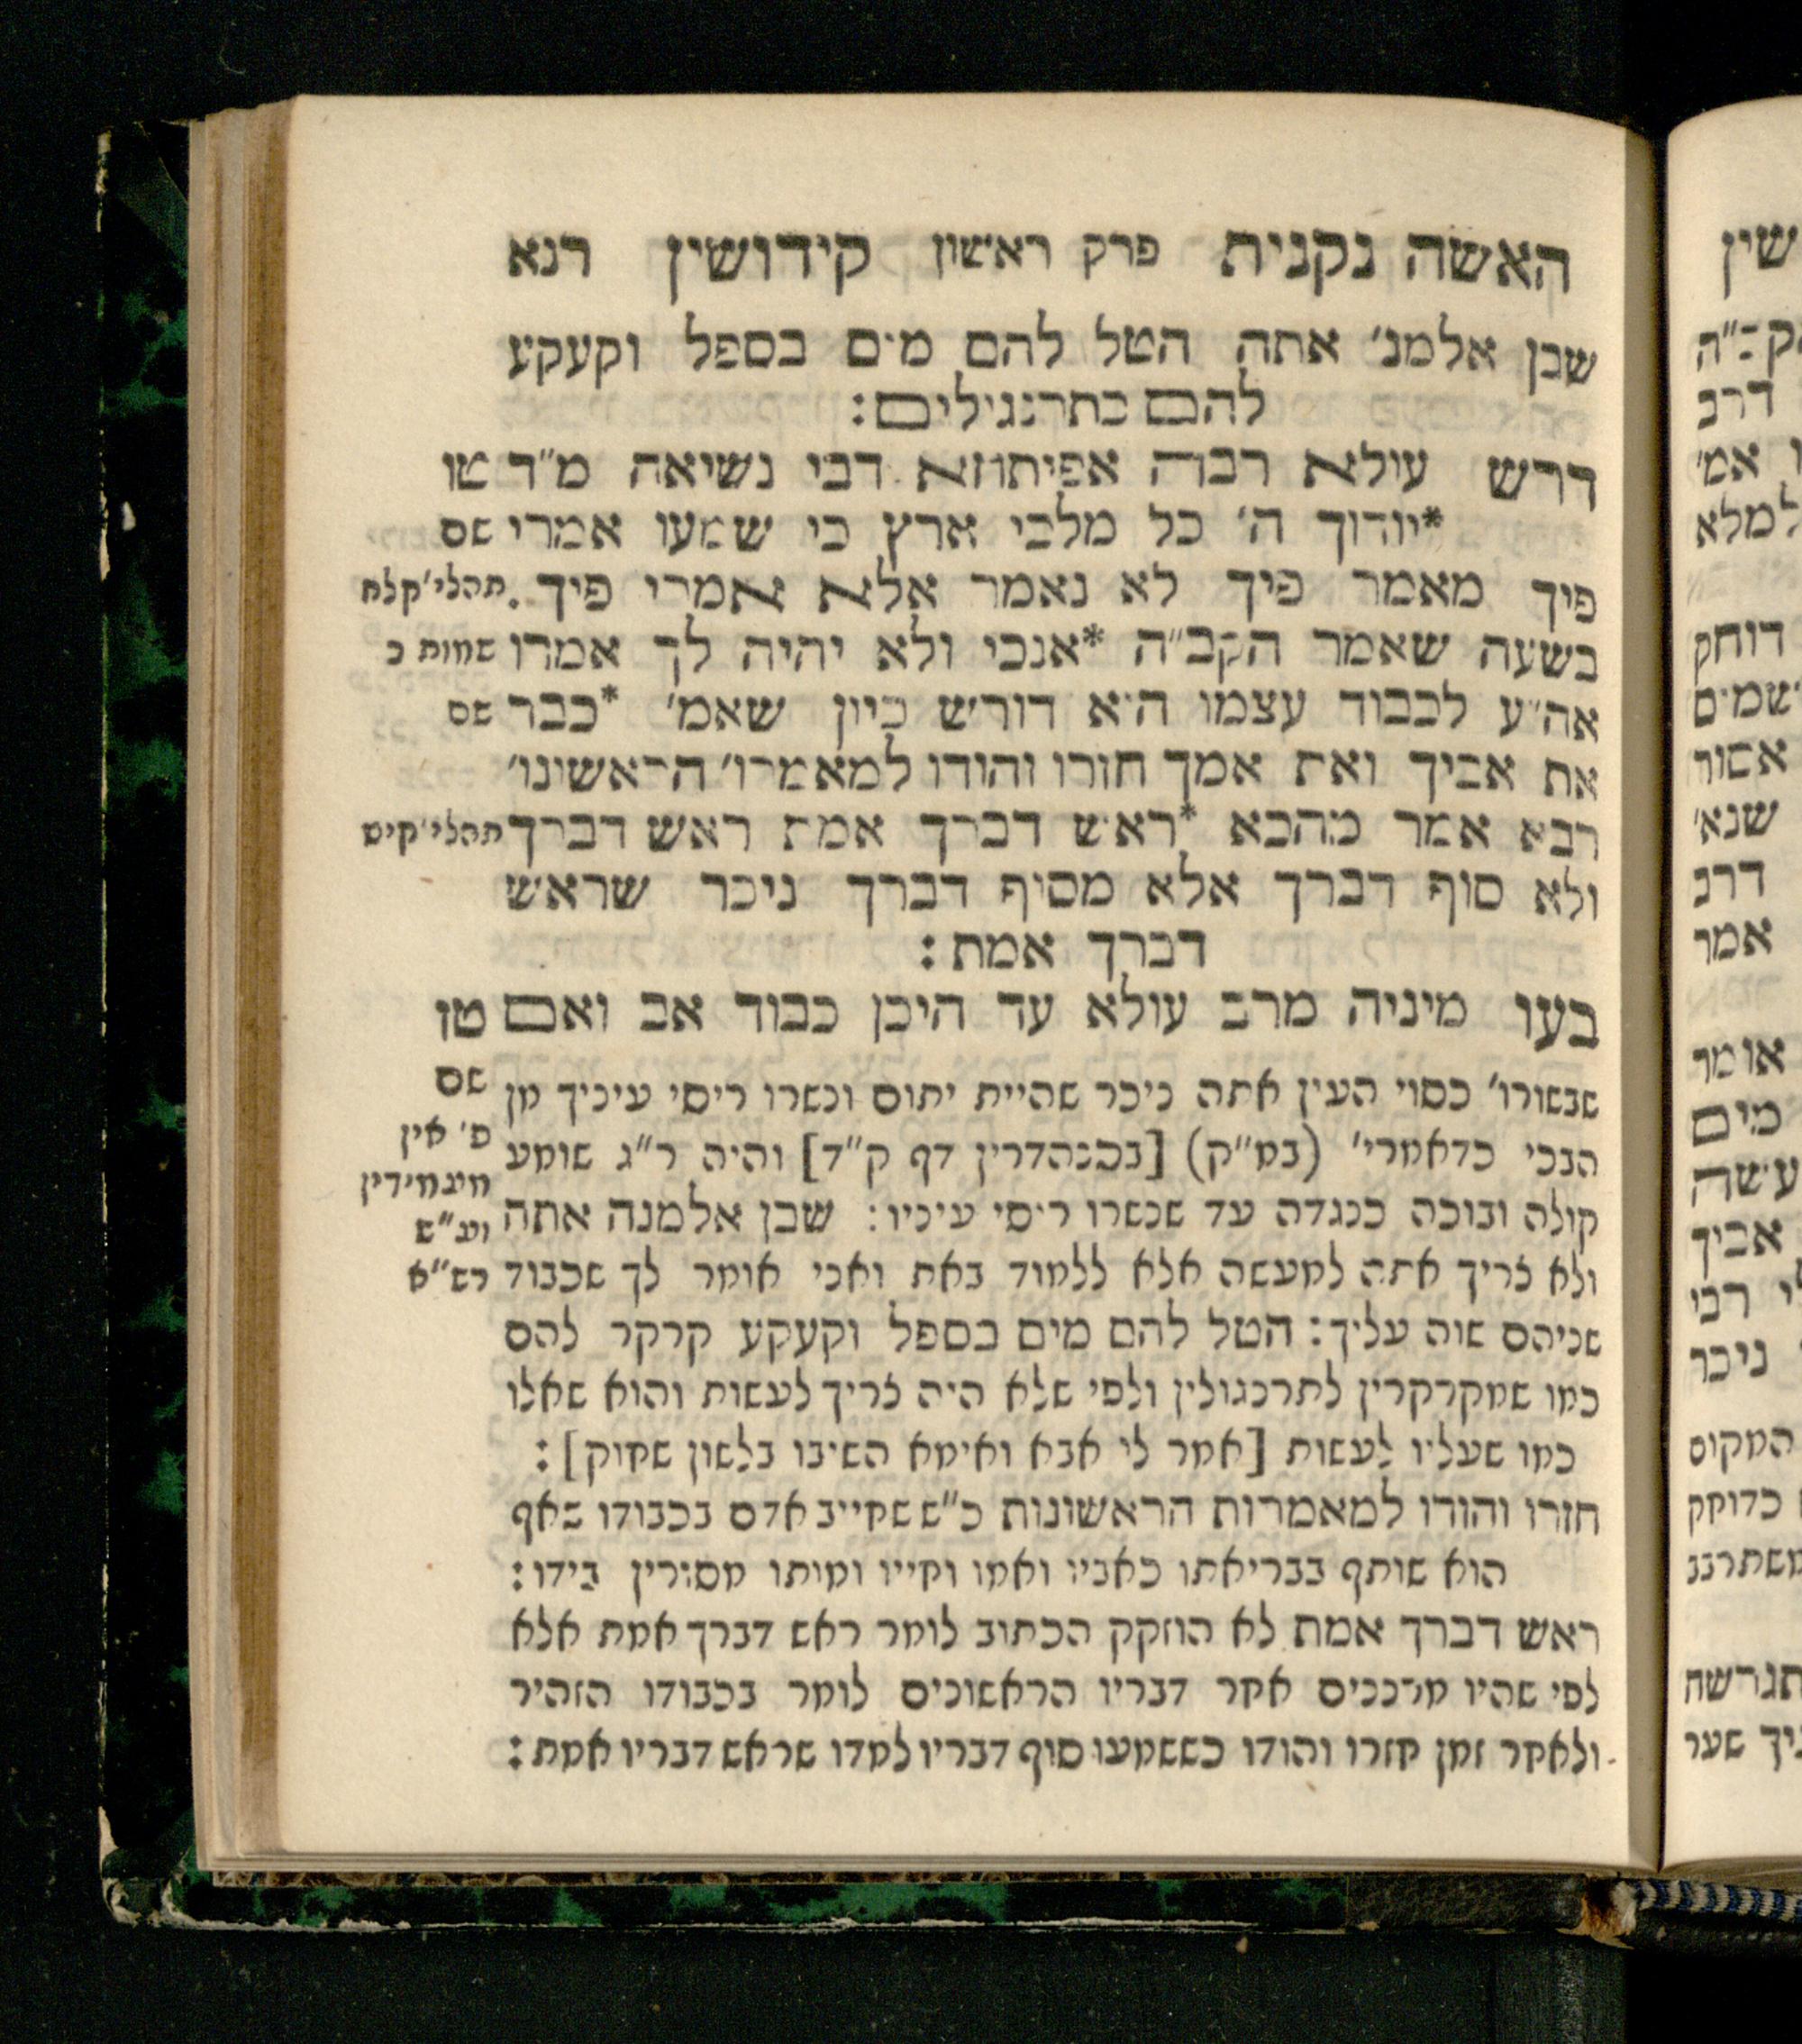 האשה נקנית פרק ראשון קידושין רנא
שבן אלמנ׳ אתה הטל להם מים בספל וקעקע
להם כתרנגולים:
דרש עולא רבה אפיתחא דבי נשיאה מ״ד טו
*יודוך ה׳ כל מלכי ארץ כי שמעו אמרי שם
פיך מאמר פיך לא נאמר אלא אמרי פיך. תהלי׳ קלח
בשעה שאמר הקב״ה *אנכי ולא יהיה לך אמרו שמות כ
אה״ע לכבוד עצמו הוא דורש כיון שאמ׳ *כבד שם
את אביך ואת אמך חזרו והודו למאמרו׳ הראשונו׳
רבא אמר מהכא *ראש דברך אמת ראש דברך תהלי׳ קיט
ולא סוף דברך אלא מסוף דברך ניכר שראש
דברך אמת:
בעו מיניה מרב עולא עד היכן כבוד אב ואם טז
שם
שבשורו׳ כסוי העין אתה ניכר שהיית יתום ונשרו ריסי עיניך מן
ס׳ אין
הבכי כדאמרי׳ (במ״ק) [בסנהדרין דף ק״ד] והיה ר״ג שומע
מעמידין
קולה ובוכה כנגדה עד שנשרו ריסי עיניו: שבן אלמנה אתה
וע״ש
ולא צריך אתה למעשה אלא ללמוד באת ואני אומר לך שכבוד רש״א
שניהם שוה עליך: הטל להם מים בספל וקעקע קרקר להם
כמו שמקרקרין לתרנגולין ולפי שלא היה צריך לעשות והוא שאלו
כמו שעליו לעשות [אמר לי אבא ואימא השיבו בלשון שחוק]:
חזרו והודו למאמרות הראשונות כ״ש שחייב אדם בכבודו שאף
הוא שותף בבריאתו כאביו ואמו וחייו ומותו מסורין בידו:
ראש דברך אמת לא הוזקק הכתוב לומר ראש דברך אמת אלא
לפי שהיו מרננים אחר דבריו הראשונים לומר בכבודו הזהיר
ולאחר זמן חזרו והודו כששמעו סוף דבריו למדו שראש דבריו אמת:
שין
דרב
למלא
דוחק
שמים
אסור
שנא׳
דרב
אמר
אומר
מים
אביך
רבי
ניכר
המקום
כדוחק
שער